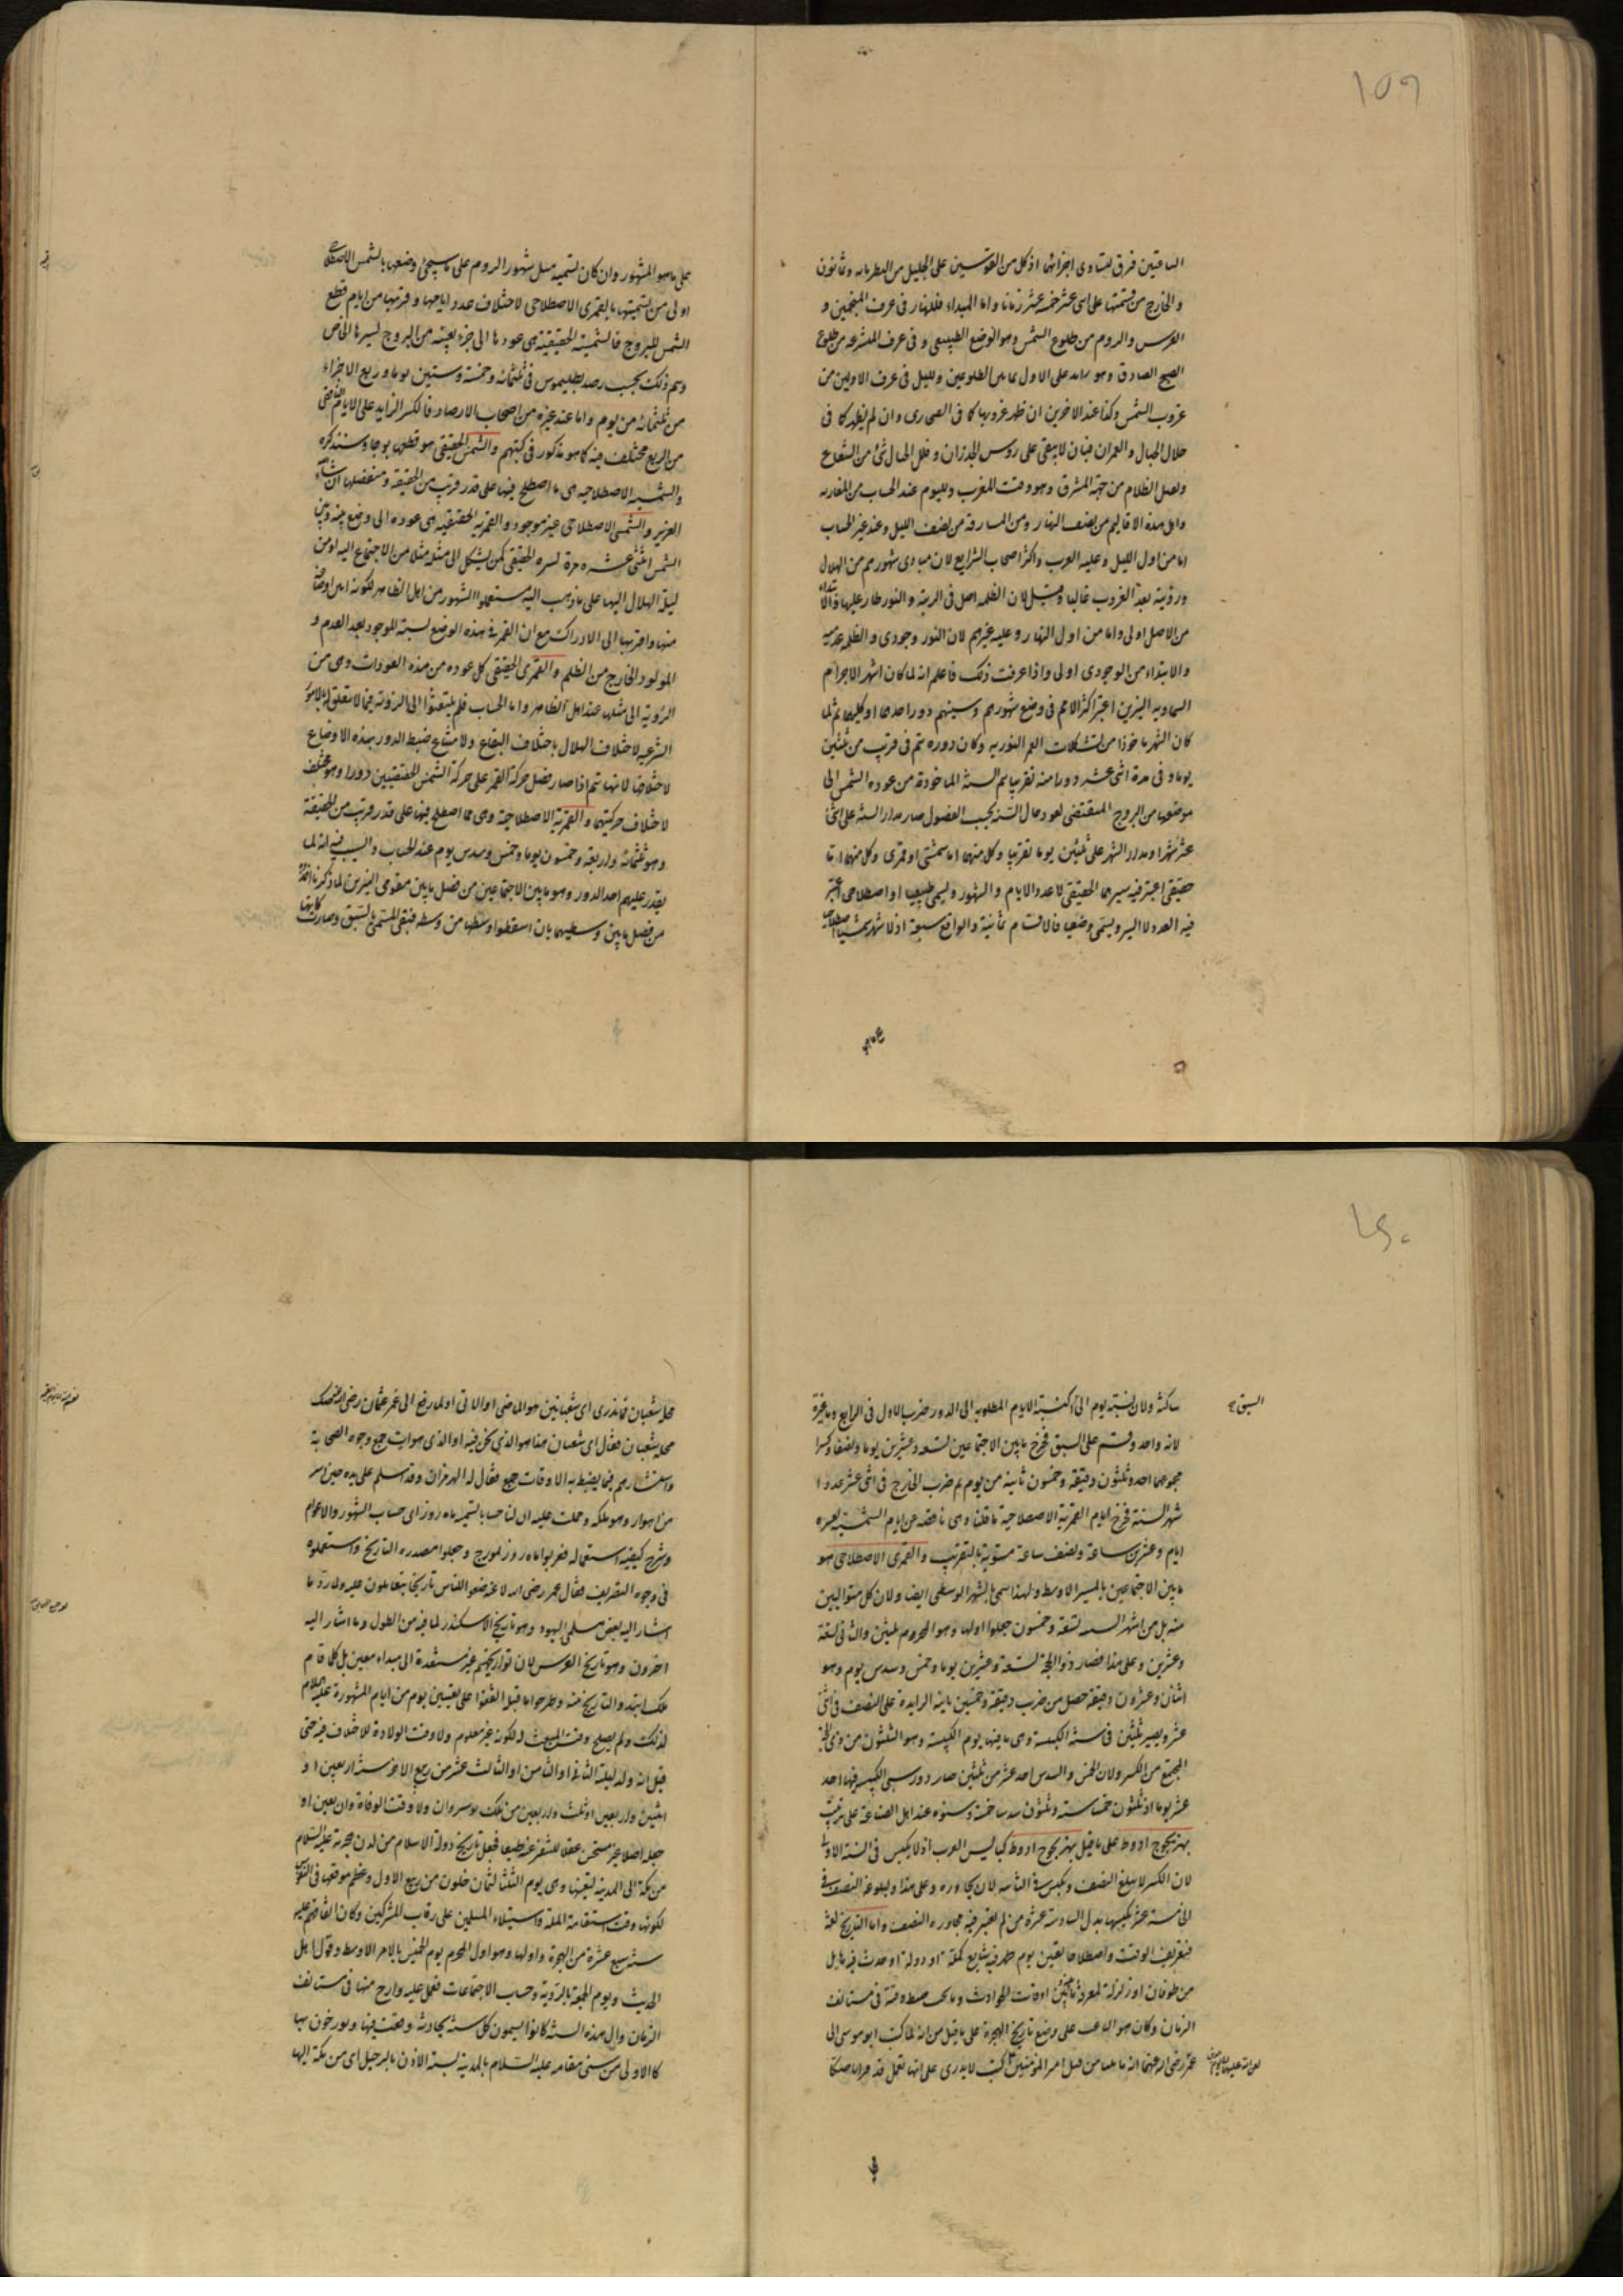 ١٥٩
الساعتين فرق لتساوى اجزائها اذ كل من القوسين على الجليل من النظر مايه وثمانون
والخارج من قسمتها على اثنى عشر خمسة عشر زمانا واما المبداء فللنهار فى عرف المنجمين و
الفرس والروم من طلوع الشمس وهو الوضع الطبيعى وفى عرف المتشرعه من طلوع
الصبح الصادق وهو زايد على الاول بما بين الطلوعين ولليل فى عرف الاولين من
غروب الشمس وكذا عند الاخرين ان ظهر غروبها كما فى الصحرى وان لم يظهر كما فى
خلال الجبال والعمران فبان لا يبقى على رؤس الجدران وقلل الجبال شئ من الشعاع
ويقبل الظلام من جهة المشرق وهو وقت المغرب ولليوم عند الحساب من المغاربه
واهل هذه الاقاليم من نصف النهار ومن المشارقة من نصف الليل وعند غير الحساب
اما من اول الليل وعليه العرب واكثر اصحاب الشرايع لان مبادى شهورهم من الهلال
ورؤيته بعد الغروب غالبا وقيل لان الظلمه اصل فى الرتبة والنور طار عليها والابتداء
من الاصل اولى واما من اول النهار وعليه غيرهم لان النور وجودى والظلمه عدميه
والابتداء من الوجودى اولى واذا عرفت ذلك فاعلم انه لما كان اشهر الاجرام
السماويه النيرين اعتبر اكثر الامم فى وضع شهورهم وسنيهم دور احدهما او كليهما ثم لما
كان الشهر ماخوذا من تشكلات القمر النوريه وكان دوره يتم فى قريب من ثلثين
يوما وفى مدة اثنى عشر دورا منه تقريبا يتم السنة الماخوذة من عودة الشمس الى
موضعها من البروج المقتضى لعود حال السنة بحسب الفصول صار مدار السنة على اثنى
عشر شهرا ومدار الشهر على ثلثين يوما تقريبا وكل منهما اما شمسى او قمرى وكل منهما اما
حقيقى اعتبر فيه سيرهما الحقيقى لا عدد الايام والشهور ويسمى طبيعيا او اصطلاحى اعتبر
فيه العدد لا السير ويسمى وضعيا فالاقسام ثمانية والواقع سبعة اذ لا شهر شمسيا اصطلاحيا
على ما هو المشهور وان كان تسميه مثل شهور الروم على ما سيجئ وضعها بالشمسى الاصطلاحى
اولى من تسميتها بالقمرى الاصطلاحى لاختلاف عدد ايامها وقربها من ايام قطع
الشمس للبروج فالشمسية الحقيقية هى عودها الى جزء بعينه من البروج بسيرها الخاص
ويتم ذلك بحسب رصد بطليموس فى ثلثمائة وخمسة وستين يوما وربع الا جزء
من ثلثمائة من يوم واما عند غيره من اصحاب الارصاد فالكسر الزايد على الايام
من الربع مختلف فيه كما هو مذكور فى كتبهم والشمسى الحقيقى هو قطعها برجا وسنذكره
والشمسيه الاصطلاحيه هى ما اصطلح فيها على قدر قريب من الحقيقة وسنفصلها ان شاء الله
العزيز والشمسى الاصطلاحى غير موجود والقمرية الحقيقيه هى عوده الى وضع بينه وبين
الشمس اثنتى عشره مرة بسيره الحقيقى كمن تشكل الى مثله مثلا من الاجتماع اليه او من
ليلة الهلال اليها على ما ذهب اليه مستعملوا الشهور من اهل الظاهر لكونه ابين اوضاعه
منها واقربها الى الادراك مع ان القمر فى هذه الوضع يشبه الموجود بعد العدم و
المولود الخارج من الظلم والقمرى الحقيقى كل عوده من هذه العودات وهى من
الرؤية الى مثلها عند اهل الظاهر واما الحساب فلم يلتفتوا الى الرؤية فيما لا يتعلق بالامور
الشرعيه لاختلاف الهلال باختلاف البقاع ولامتناع ضبط الدور بهذه الاوضاع
لاختلافها لانها تتم اذا صار فضل حركة القمر على حركة الشمس الحقيقيتين دورا وهو مختلف
لاختلاف حركتيهما والقمرية الاصطلاحية وهى مما اصطلح فيها على قدر قريب من الحقيقة
وهو ثلثمائة واربعة وخمسون يوما وخمس وسدس يوم عند الحساب والسبب فيه انه لما
يتعذر عليهم اخذ الدور وهو ما بين الاجتماعين من فضل ما بين مقومى النيرين لما ذكرنا اخذوه
من فضل ما بين وسطيهما بان اسقطوا وسطها من وسطه فبقى المسمى بالسبق وصارت كانها
١٦٠
السبق
ساكنة ولان نسبة يوم الى السبق كنسبة الايام المطلوبه الى الدور ضرب الاول فى الرابع وما غيره
لانه واحد وقسم على السبق فخرج ما بين الاجتماعين تسعة وعشرين يوما ونصفا وكسرا
مجموعهما احد وثلثون دقيقه وخمسون ثانية من يوم ثم ضرب الخارج فى اثنى عشر عددا
شهر السنة فخرج ايام القمرية الاصطلاحية ما قلنا وهى ناقصه عن ايام الشمسية بعشره
ايام وعشرين ساعة ونصف ساعة مستوية بالتقريب والقمرى الاصطلاحى هو
ما بين الاجتماعين بالمسير الاوسط ولهذا سمى بالشهر الوسطى ايضا ولان كل متواليين
منه بل من اشهر السنه تسعة وخمسون جعلوا اولها وهو المحرم ثلثين والثانى تسعة
وعشرين وعلى هذا فصار ذو الحجة تسعة وعشرين يوما وخمس وسدس يوم وهو
اثنان وعشرون دقيقة حصل من ضرب دقيقة وخمسين ثانية الزايدة على النصف فى اثنى
عشر ويصير ثلثين فى سنة الكبيسة وهى ما فيها يوم الكبيسة وهو الثلثون من ذى الحجة
المجتمع من الكسر ولان الخمس والسدس احد عشر من ثلثين صار دور سنى الكبيسة فيها احد
عشر يوما اذ ثلثون خمسا ستة وثلثون سدسا خمسة وسنوه عند اهل الصناعة على ترتيب
بهزيجوح ادوط على ما قيل بهزيجوح ادوط كبايس العرب اذ لا يكبس فى السنة الاولى
لان الكسر لا يبلغ النصف ويكبس فى الثانيه لان يجاوزه وعلى هذا ولبلوغه النصف فى
الخامسة عشر يكبسها بدل السادسة عشرة من لم يعتبر فيه مجاوزه النصف واما التاريخ لغة
فتعريف الوقت واصطلاحا تعيين يوم ظهر فيه شايع كملة او دولة او حدث فيه هايل
من طوفان او زلزلة لمعرفة ما بينه وبين اوقات الحوادث وما يجب ضبط وقته فى مستانف
الزمان وكان هو الباعث على وضع تاريخ الهجرة على ما قيل من انه لما كتب ابو موسى الى
عمر رضى الله عنهما انه ياتينا من قبل امير المؤمنين كتب لا يدرى على ايها نعمل قد قرانا صكا
محله شعبان فما ندرى اى شعبانين هو الماضى او الآتى او لما رفع الى عمر عثمان رضى الله عنه صك
محله شعبان فقال اى شعبان هذا هو الذى نحن فيه او الذى هو آت جمع وجوه الصحابة
واستشارهم فيما يضبط به الاوقات جميع فقال له الهرمزان وقد اسلم على يده حين اسر
من اهواز وهو ملكه وحملت عليه ان لنا حسابا نسميه ماه روز اى حساب الشهور والاعوام
وشرح كيفية استعماله فعربوا ماه روز بمورخ وجعلوا مصدره التاريخ واستعملوه
فى وجوه التصريف فقال عمر رضى الله عنه ضعوا للناس تاريخا يتعاملون عليه ولم يرد ما
اشار اليه بعض مسلمى اليهود وهو تاريخ الاسكندر لما فيه من الطول وما اشار اليه
اخرون وهو تاريخ الفرس لان تواريخهم غير مستندة الى مبداء معين بل كلما قام
ملك ابتدوا التاريخ منه وطرحوا ما قبل اتفقوا على تعيين يوم من ايام المشهورة عليه السلام
لذلك ولم يصلح وقت المبعث لكونه غير معلوم ولا وقت الولادة للاختلاف فيه حتى
قيل انه ولد ليلة الثانى او الثامن او الثالث عشر من ربيع الاخر سنة اربعين او
اثنين واربعين او ثلث واربعين من ملك نوشروان ولا وقت الوفاة وان يعين او
جعله اصلا غير مستحسن عقلا للتنفر عنه طبعا فجعل تاريخ دولة الاسلام من لدن هجرته عليه السلام
من مكة الى المدينه لتعينها وهى يوم الثلثا لثمان خلون من ربيع الاول وعظم موقعها فى النفوس
لكونها وقت استقامة الملة واستيلاء المسلمين على رقاب المشركين وكان اتفاقهم عليه
سنة سبع عشرة من الهجرة واولها وهو اول المحرم يوم الخميس بالامر الاوسط وقول اهل
الحديث ويوم الجمعة بالرؤية وحساب الاجتماعات فعمل عليه وارخ منها فى مستانف
الزمان والى هذه السنة كانوا يسمون كل سنة بحادثة وقعت فيها ويورخون بها
كالاولى من سنى مقامه عليه السلام بالمدينة بسنة الاذن بالرحيل اى من مكة اليها